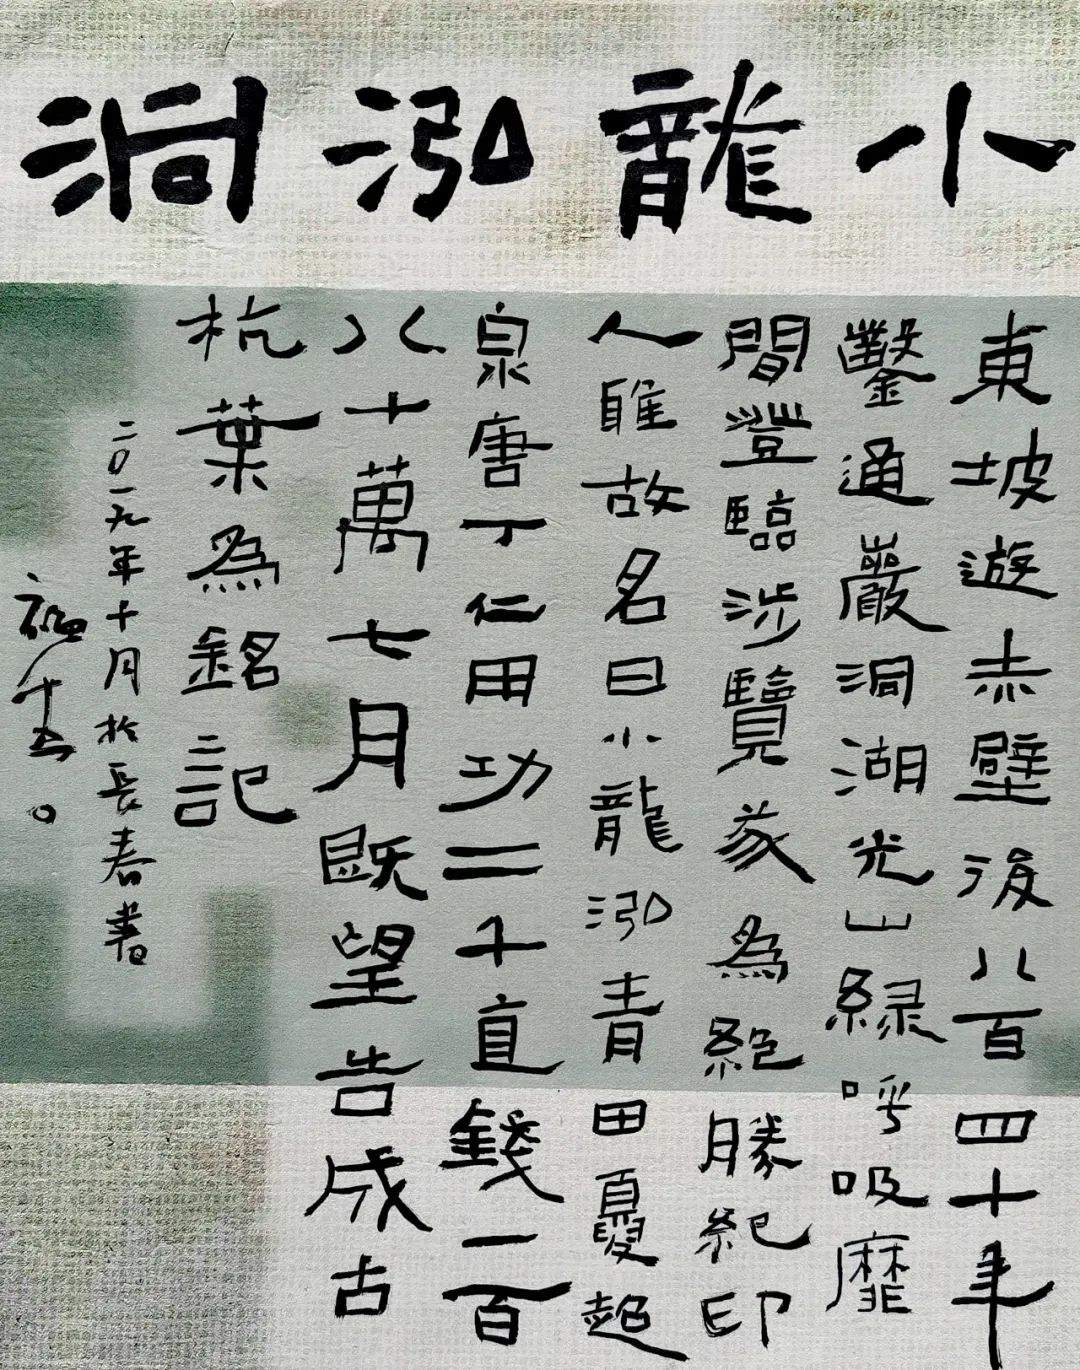 小龍泓洞
東坡遊赤壁後八百四十年
鑿通巖洞湖光山綠呼吸靡
間登臨涉覽㒸為絕勝紀印
人睢故名曰小龍泓青田夏超
泉唐丁仁用功二千直錢一百
八十萬七月既望告成古
杭葉為銘記
二〇一九年十月於長春書